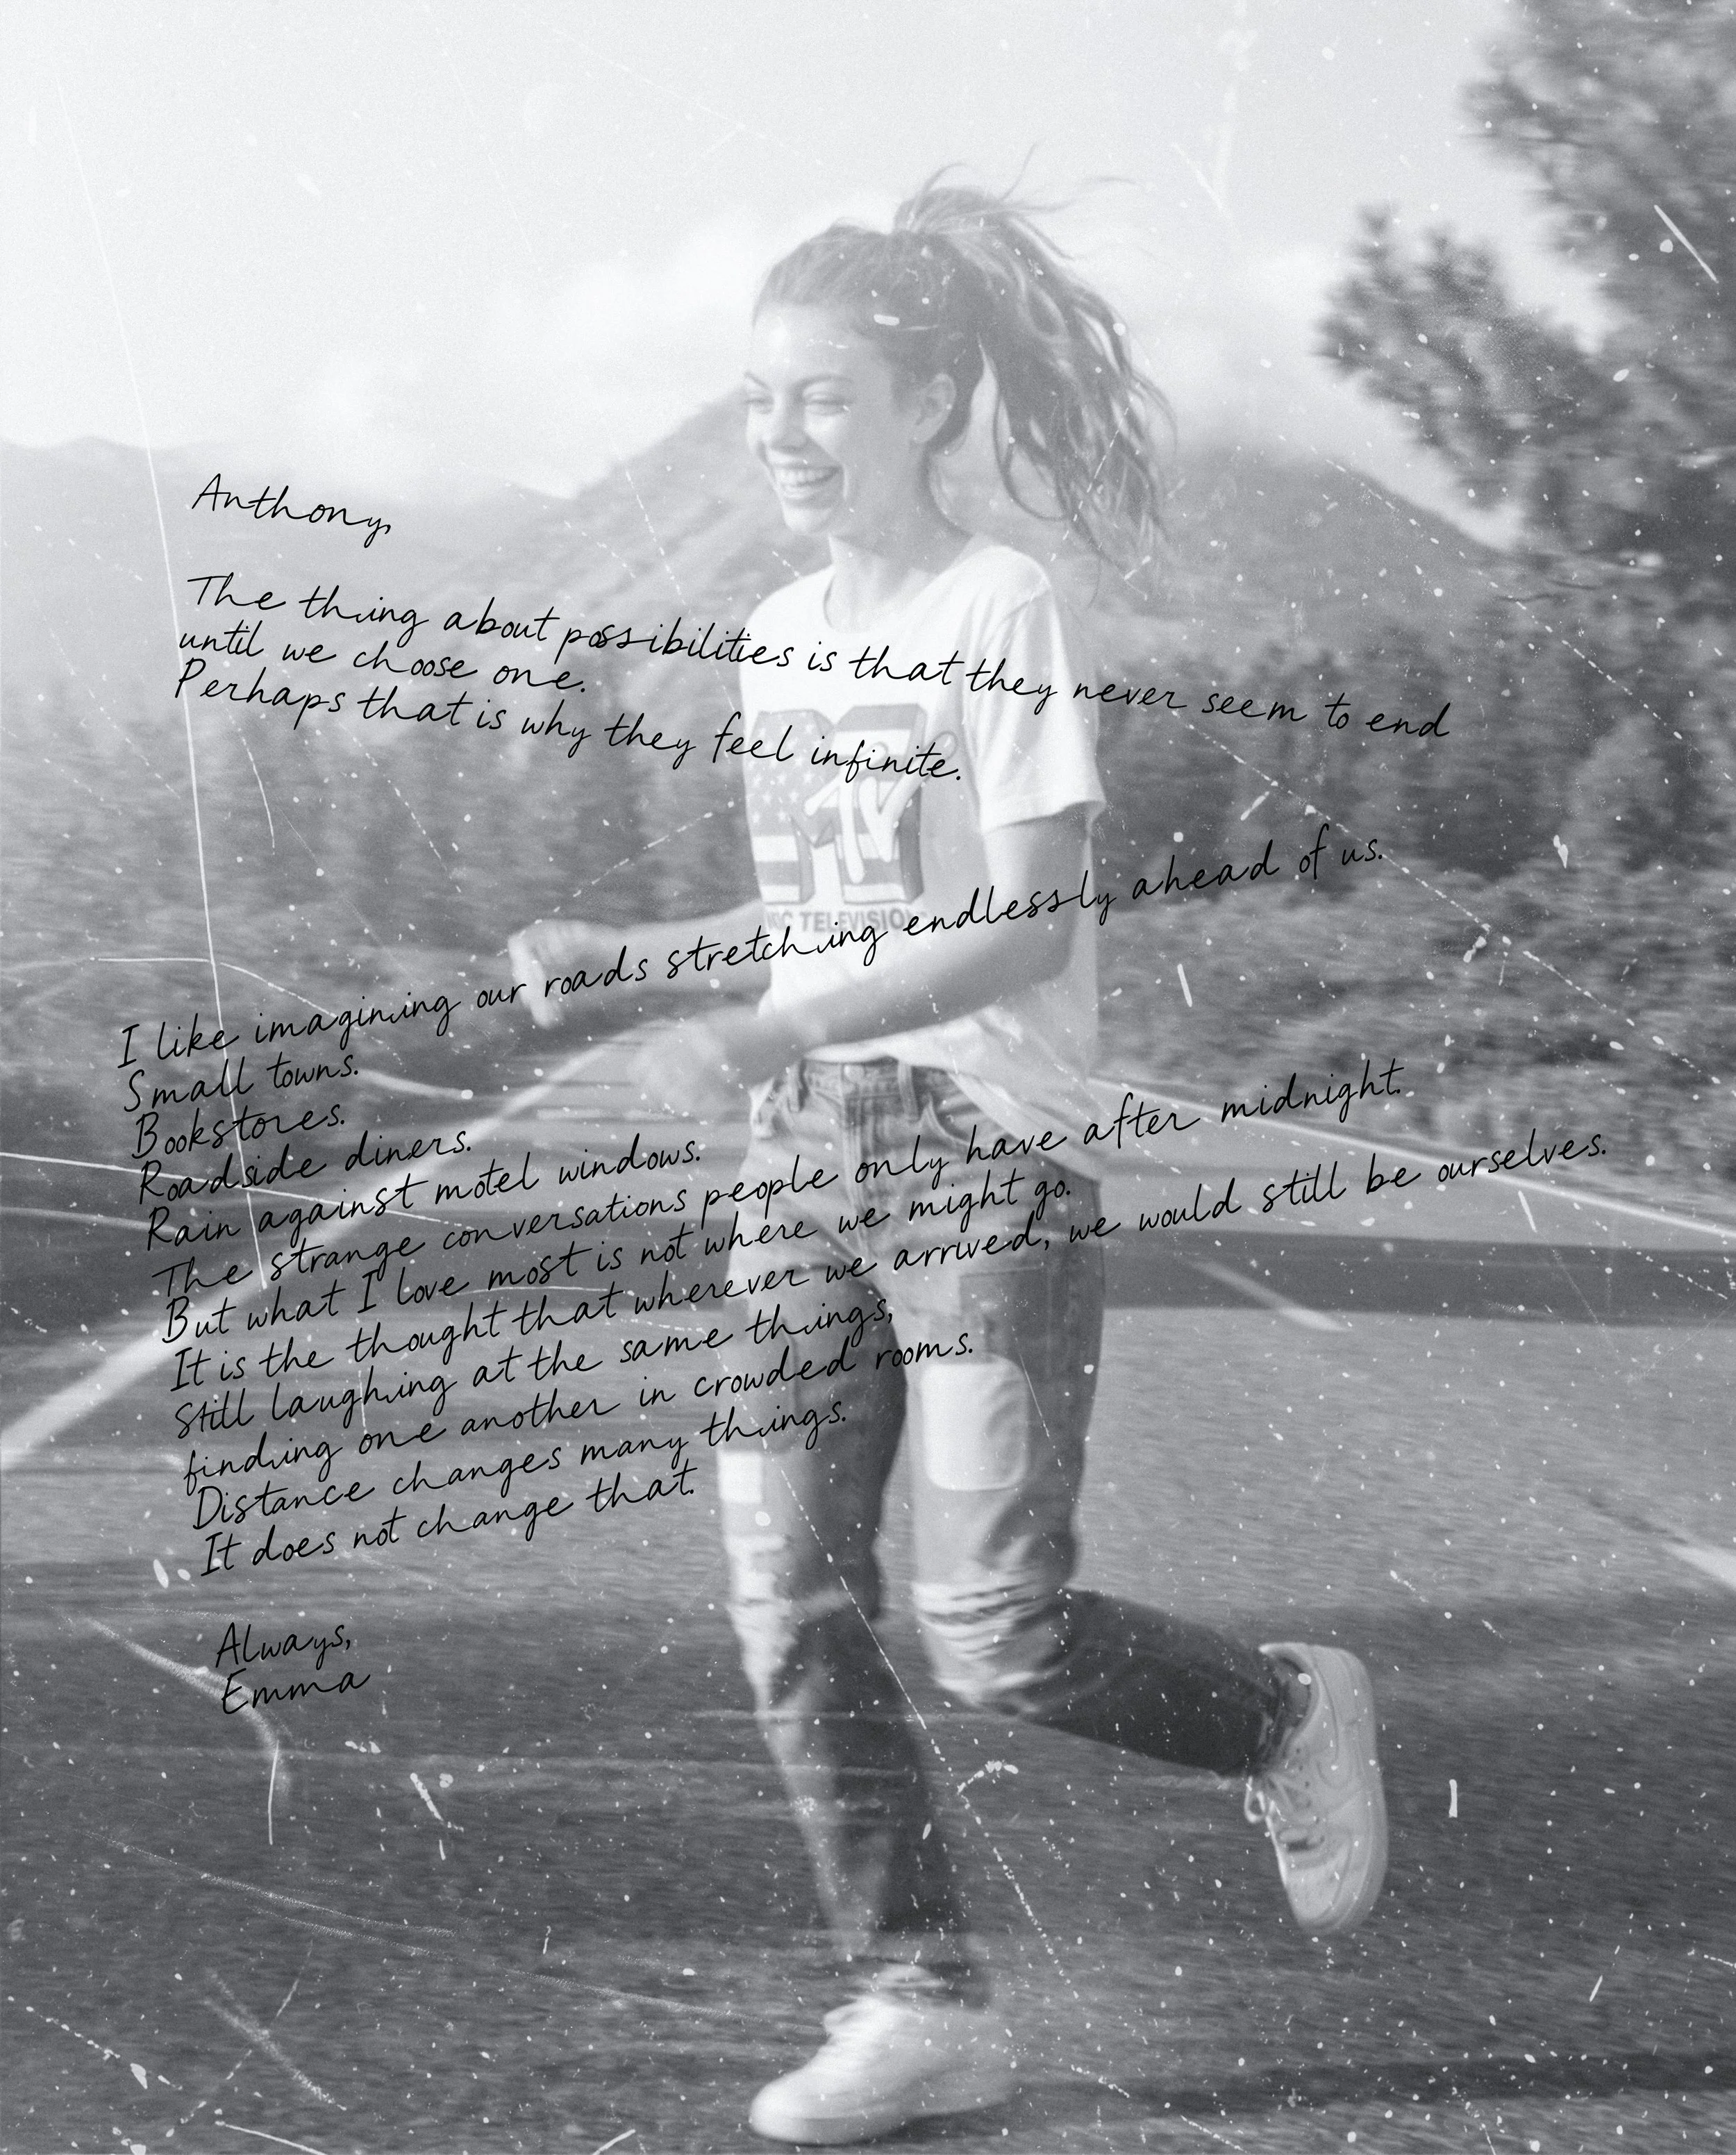 Anthony,
The thing about possibilities is that they never seem to end
until we choose one.
Perhaps that is why they feel infinite.
MTV
TELEVISION
I like imagining our roads stretching endlessly ahead of us.
Small towns.
Bookstores.
Roadside diners.
Rain against motel windows.
The strange conversations people only have after midnight.
But what I love most is not where we might go.
It is the thought that wherever we arrived, we would still be ourselves.
Still laughing at the same things,
finding one another in crowded rooms.
Distance changes many things.
It does not change that.
Always,
Emma